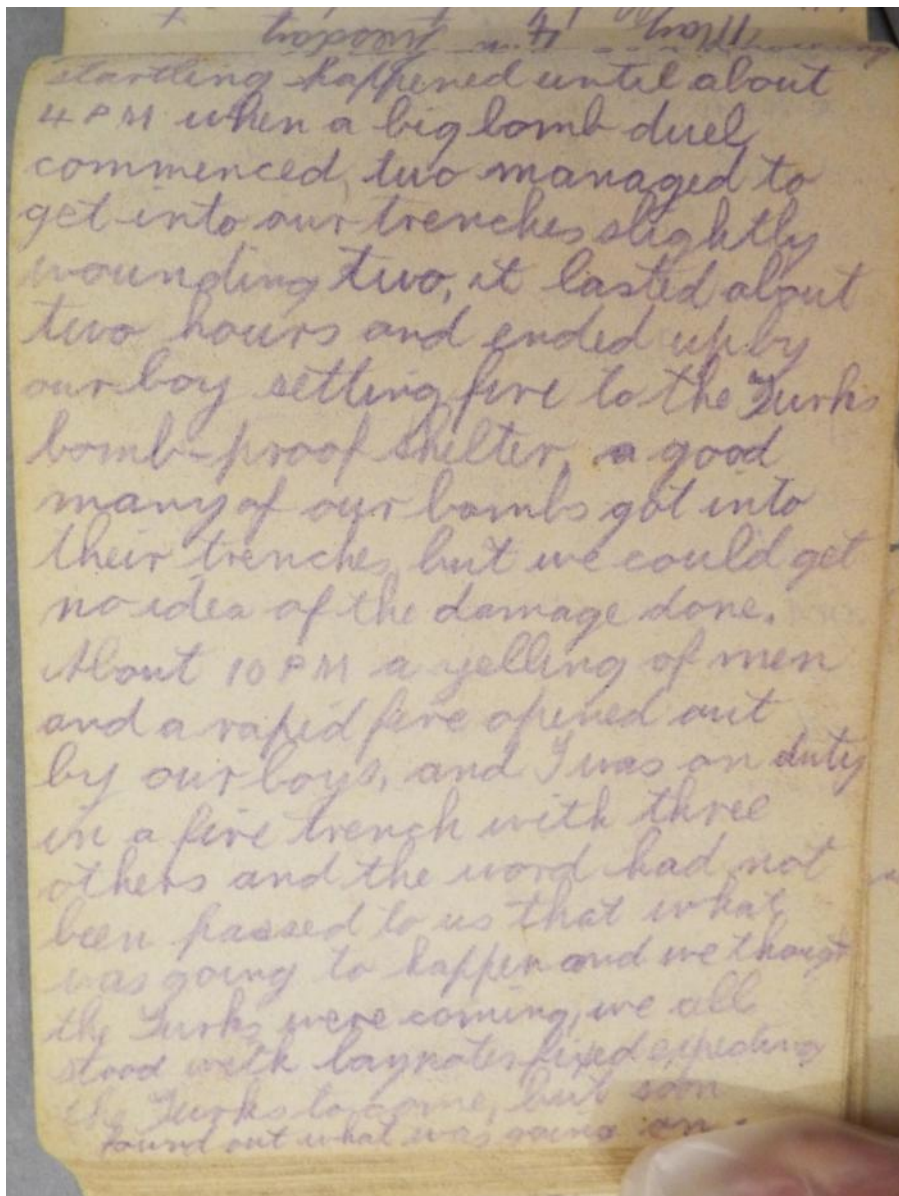 May 4 Tuesday
startling happened until about
4 PM when a big bomb duel
commenced, two managed to
get into our trenches slightly
wounding two, it lasted about
two hours and ended up by
our boy setting fire to the Turks
bomb-proof shelter, a good
many of our bombs got into
their trenches, but we could get
no idea of the damage done.
About 10 PM a yelling of men
and a rapid fire opened out
by our boys, and I was on duty
in a fire trench with three
others and the word had not
been passed to us that what
was going to happen and we thought
the Turks were coming, we all
stood with baynotes fixed expecting
the Turks to come, but soon
found out what was going on